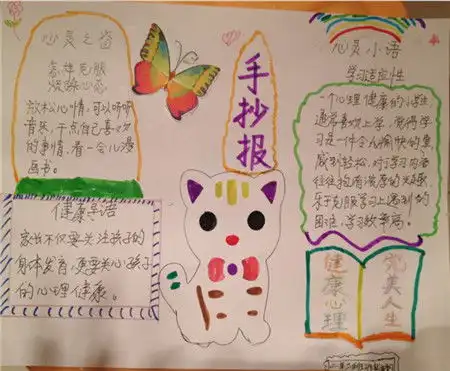 心灵之窗
怎样克服
放松心情,可以听听
音乐,干点自己喜欢
的事情,看一会儿漫
画书。
健康导语
家长不仅要关注孩子的
身体发育,更要关心孩子
的心理健康。
手抄报
心灵小语
学习适应性
一个心理健康的小学生
通常喜欢上学,觉得学
习是一件令人愉快的事,
感到轻松,对学习内容
往往抱有浓厚的兴趣,
乐于克服学习上遇到的
困难,学习效率高。
健康心理
完美人生